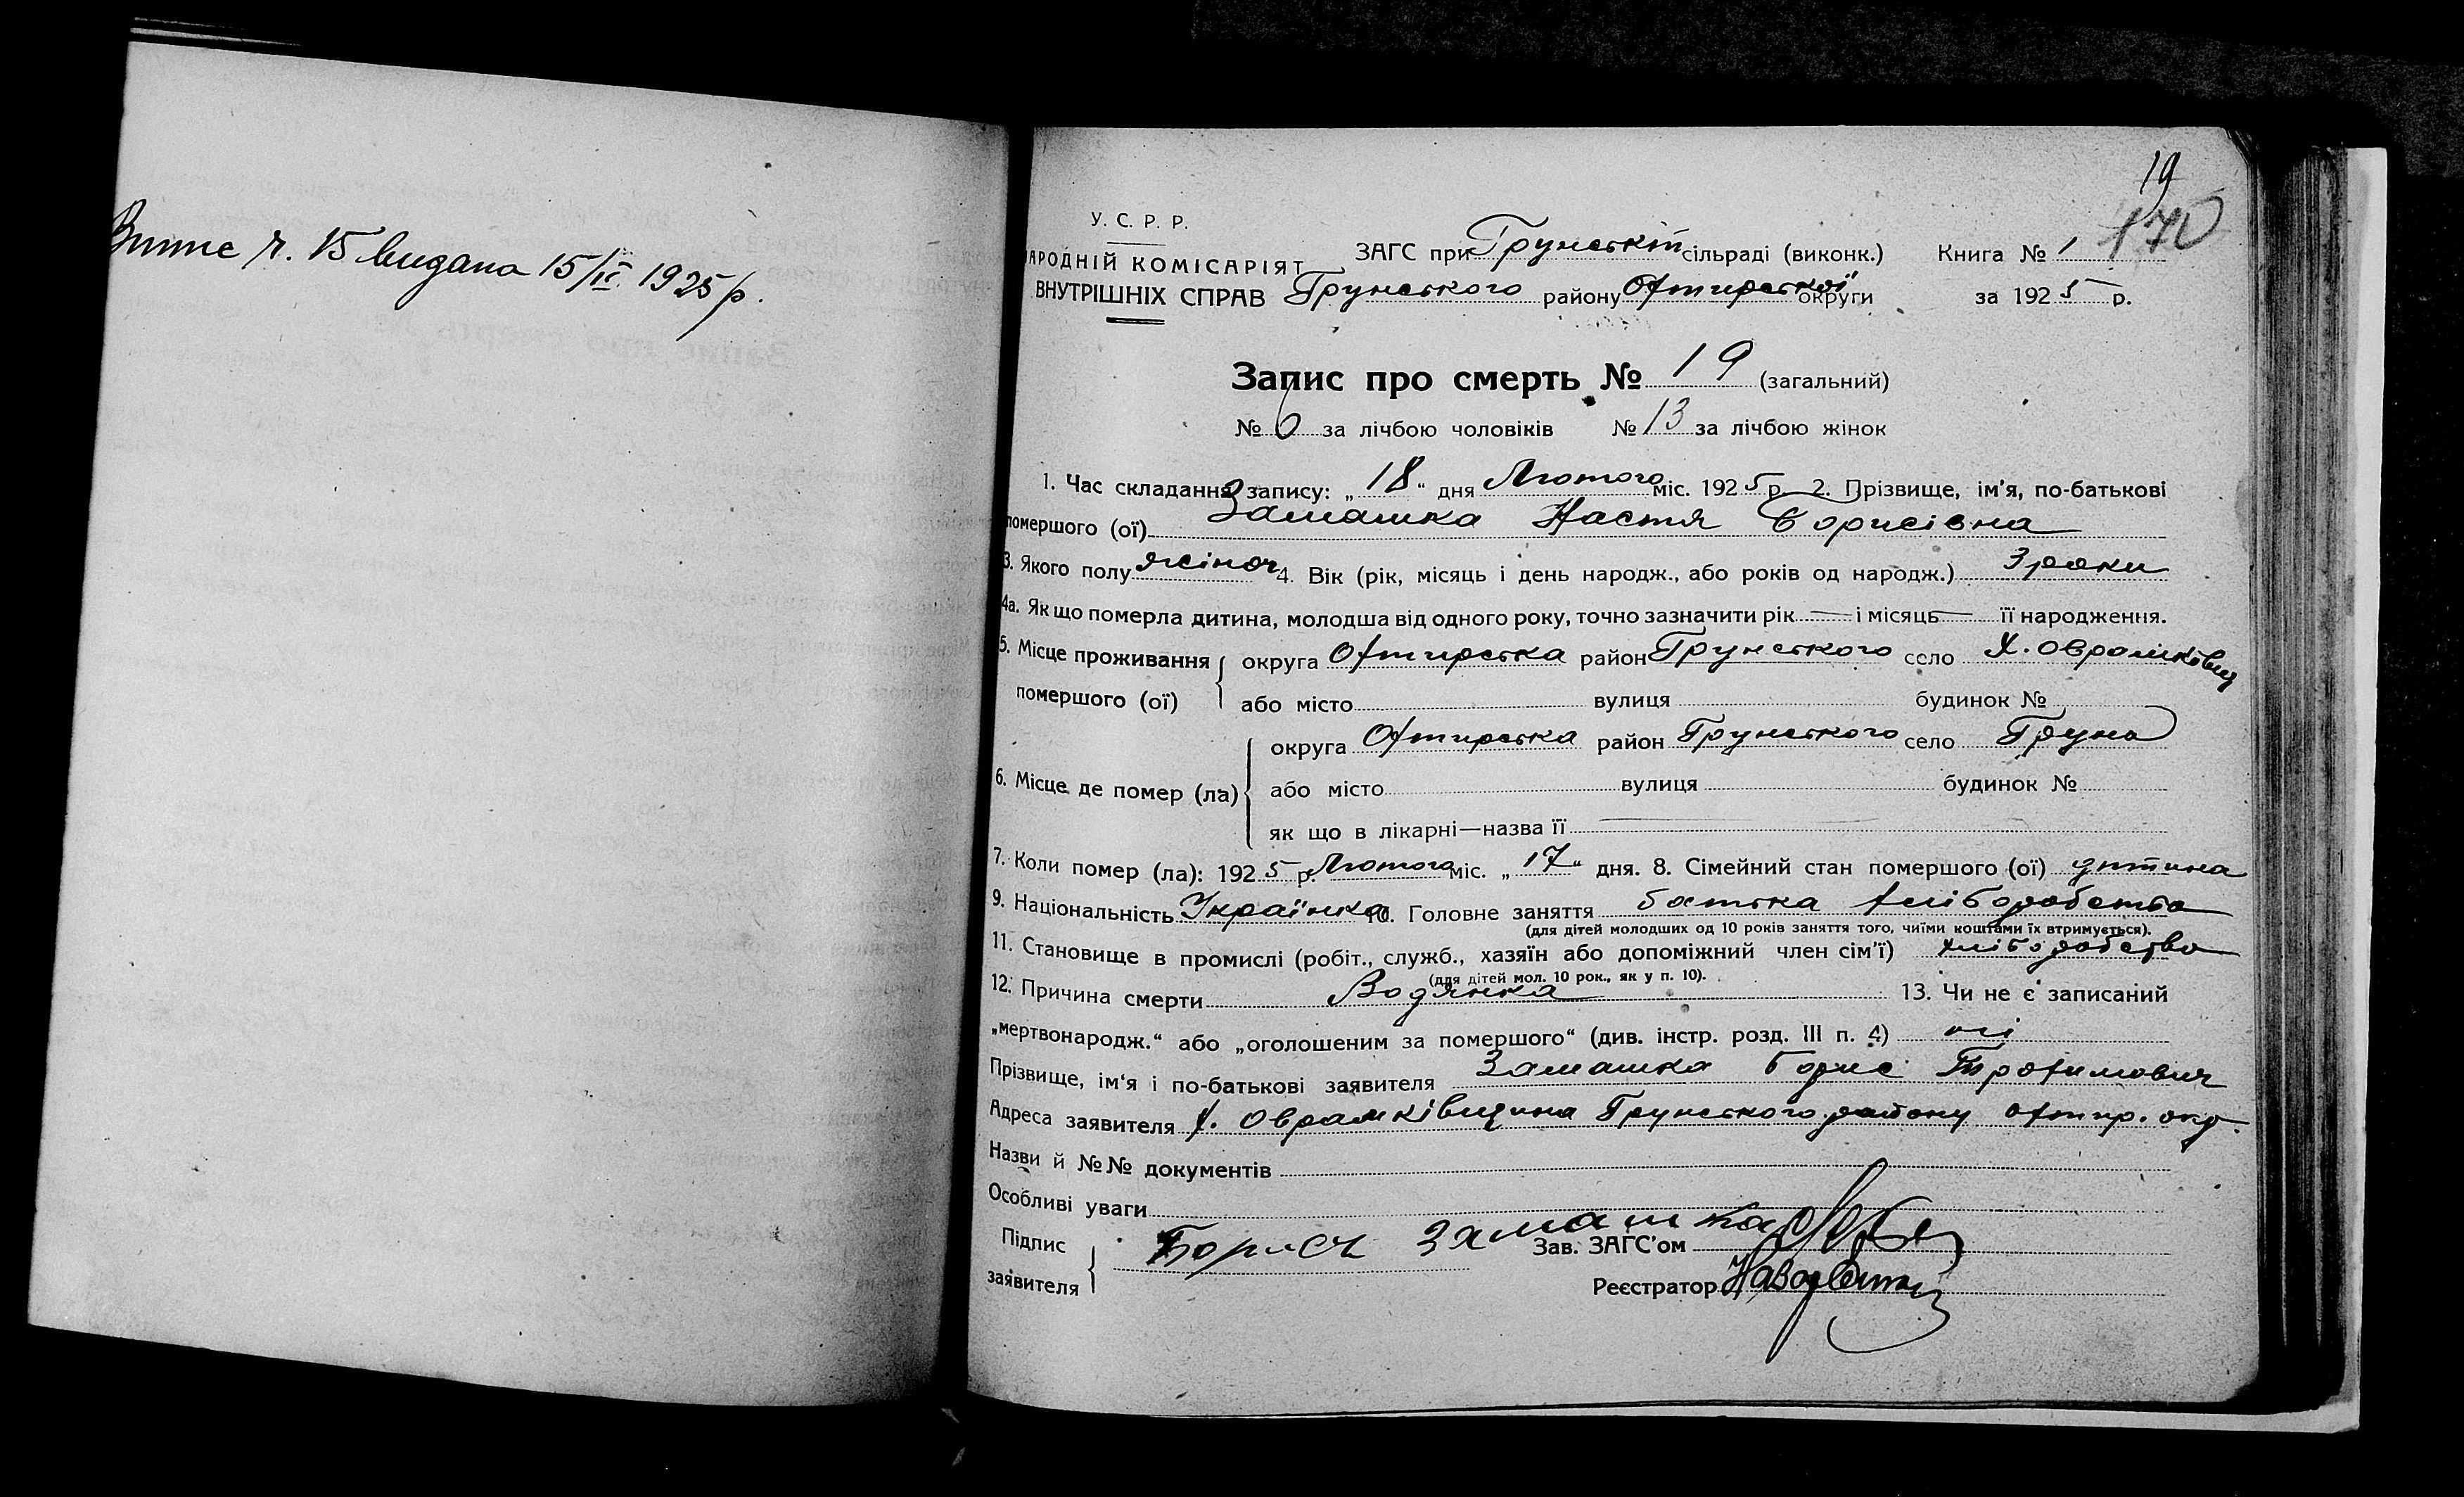 Випис ч. 15 видана 15/II 1925 р.
19
170
У. С. Р. Р.
НАРОДНІЙ КОМІСАРІЯТ
ВНУТРІШНІХ СПРАВ
ЗАГС при Грунській сільраді (виконк.) Книга № 1
Грунського району Охтирської округи за 1925 р.
Запис про смерть № 19 (загальний)
№ 6 за лічбою чоловіків № 13 за лічбою жінок
1. Час складання запису: „18“ дня Лютого міс. 1925 р. 2. Прізвище, ім'я, по-батькові
помершого (ої) Замашка Настя Борисівна
3. Якого полу жіноч 4. Вік (рік, місяць і день народж., або років од народж.) 3 роки
4а. Як що померла дитина, молодша від одного року, точно зазначити рік — і місяць — її народження.
5. Місце проживання округа Охтирська район Грунського село Х. Оврамківщ
помершого (ої) або місто вулиця будинок №
округа Охтирська район Грунського село Груно
6. Місце де помер (ла) або місто вулиця будинок №
як що в лікарні—назва її
7. Коли помер (ла): 1925 р. Лютого міс. „17“ дня. 8. Сімейний стан помершого (ої) дитина
9. Національність Українка 10. Головне заняття батька хліборобство
(для дітей молодших од 10 років заняття того, чиїми коштами їх втримується).
11. Становище в промислі (робіт., служб., хазяїн або допоміжний член сім'ї) хліборобство
(для дітей мол. 10 рок., як у п. 10).
12. Причина смерти Водянка 13. Чи не є записаний
„мертвонародж.“ або „оголошеним за помершого“ (див. інстр. розд. III п. 4) ні
Прізвище, ім'я і по-батькові заявителя Замашка Борис Трохимович
Адреса заявителя х. Оврамківщина Грунського району Охтир. окр.
Назви й №№ документів
Особливі уваги
Підпис заявителя Борисъ Замашка Зав. ЗАГС'ом
Реєстратор